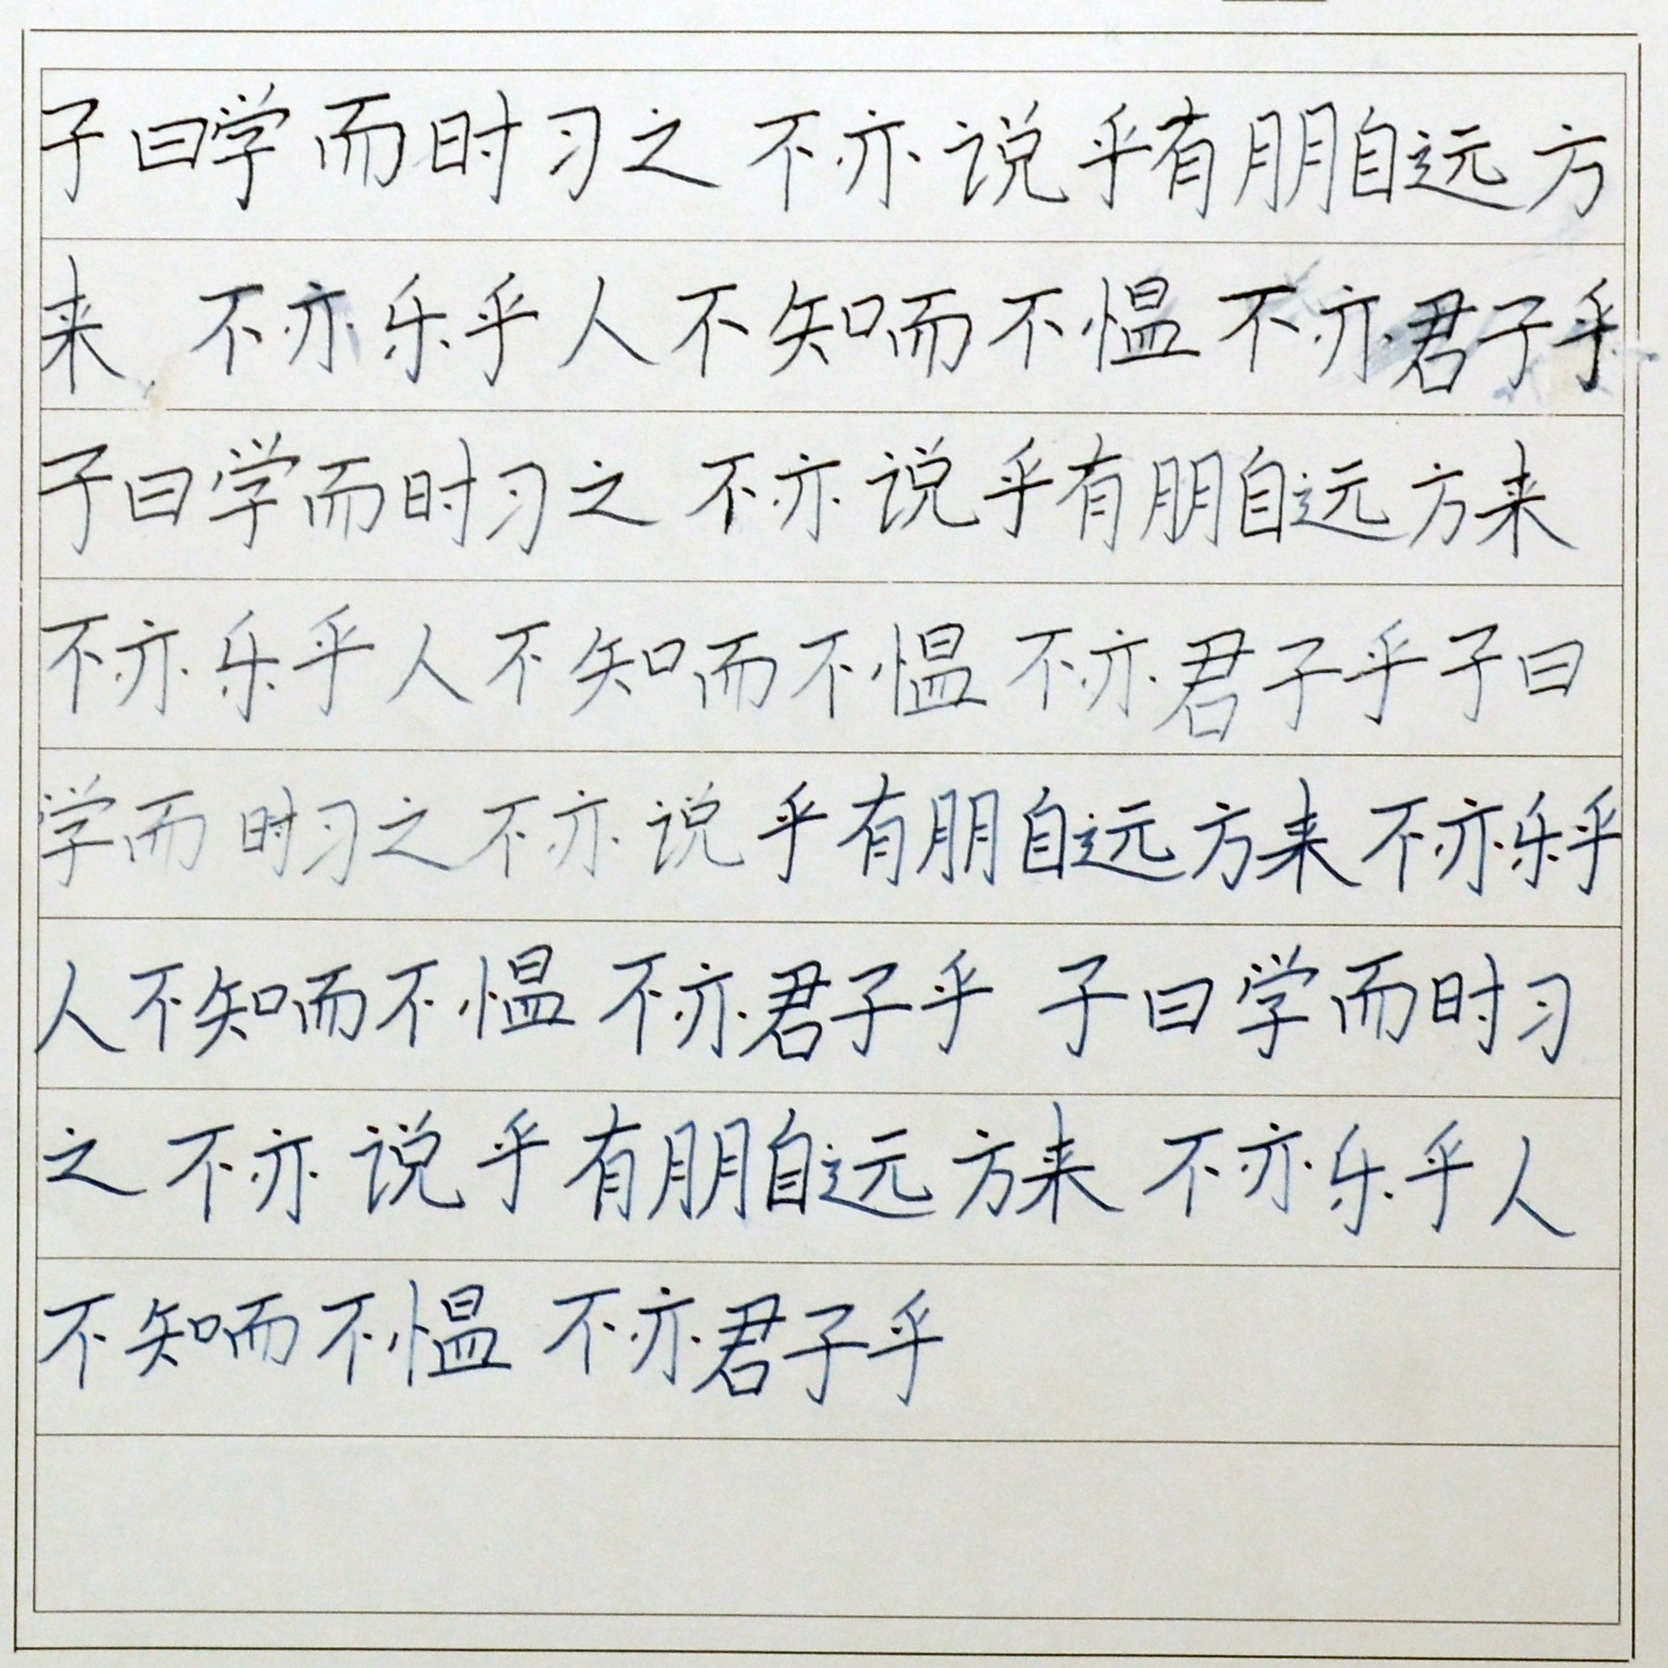 子曰学而时习之 不亦说乎有朋自远方
来 不亦乐乎人不知而不愠 不亦君子乎
子曰学而时习之 不亦说乎有朋自远方来
不亦乐乎人不知而不愠 不亦君子乎子曰
学而时习之不亦说乎有朋自远方来不亦乐乎
人不知而不愠 不亦君子乎 子曰学而时习
之 不亦说乎有朋自远方来 不亦乐乎人
不知而不愠 不亦君子乎